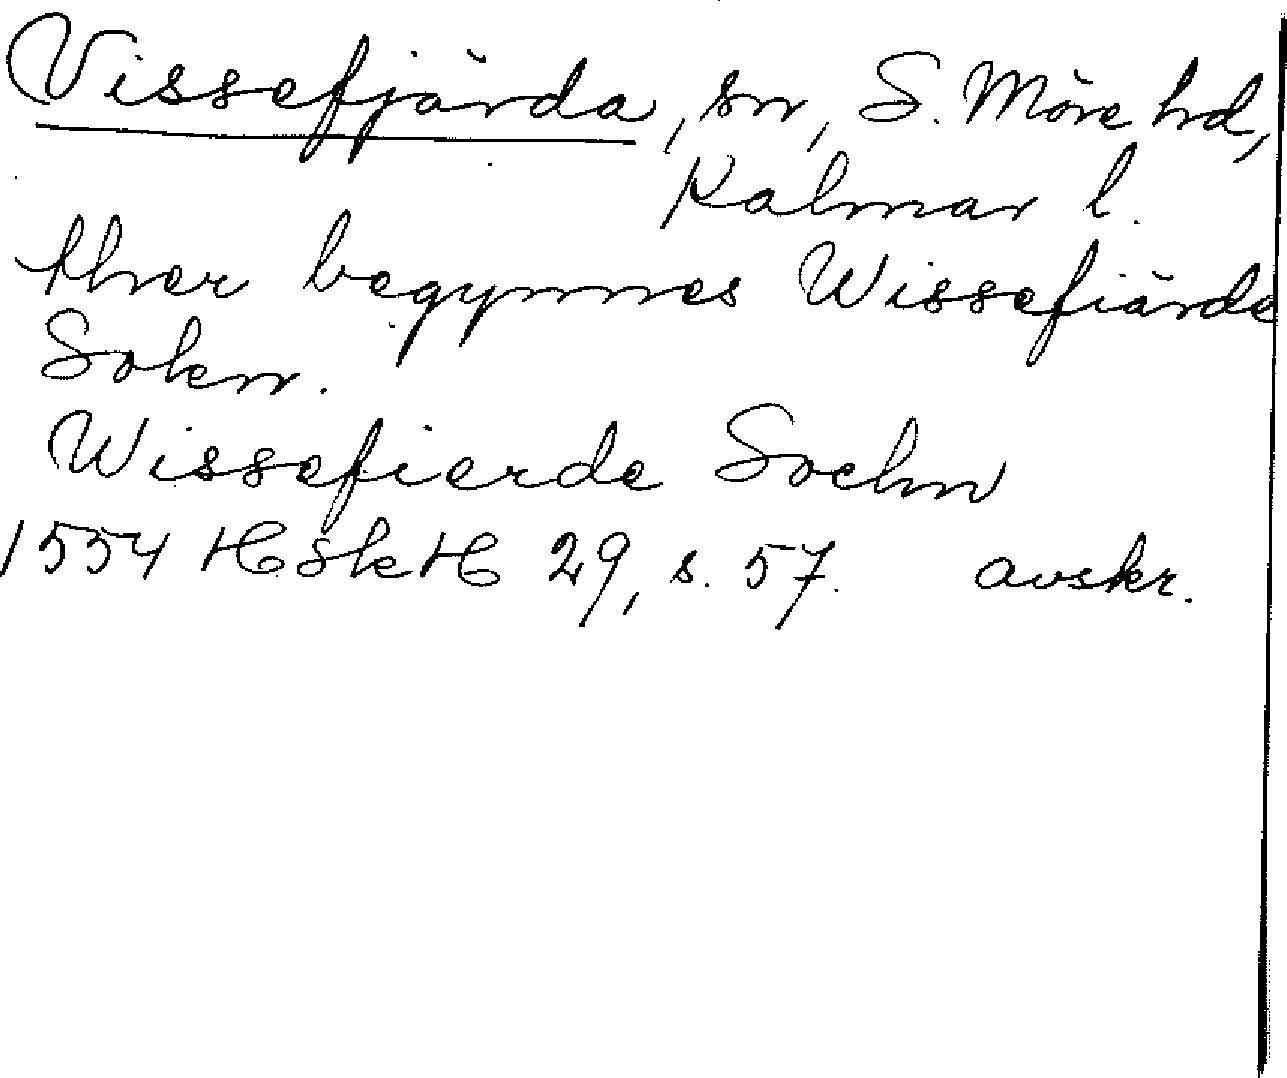 Vissefjärda, sn, S. Möre hd,
Kalmar l.
ther begynnes Wissefiärde
Sokn.
Wissefierde Sochn
1554 HSkH 29, s. 57. avskr.